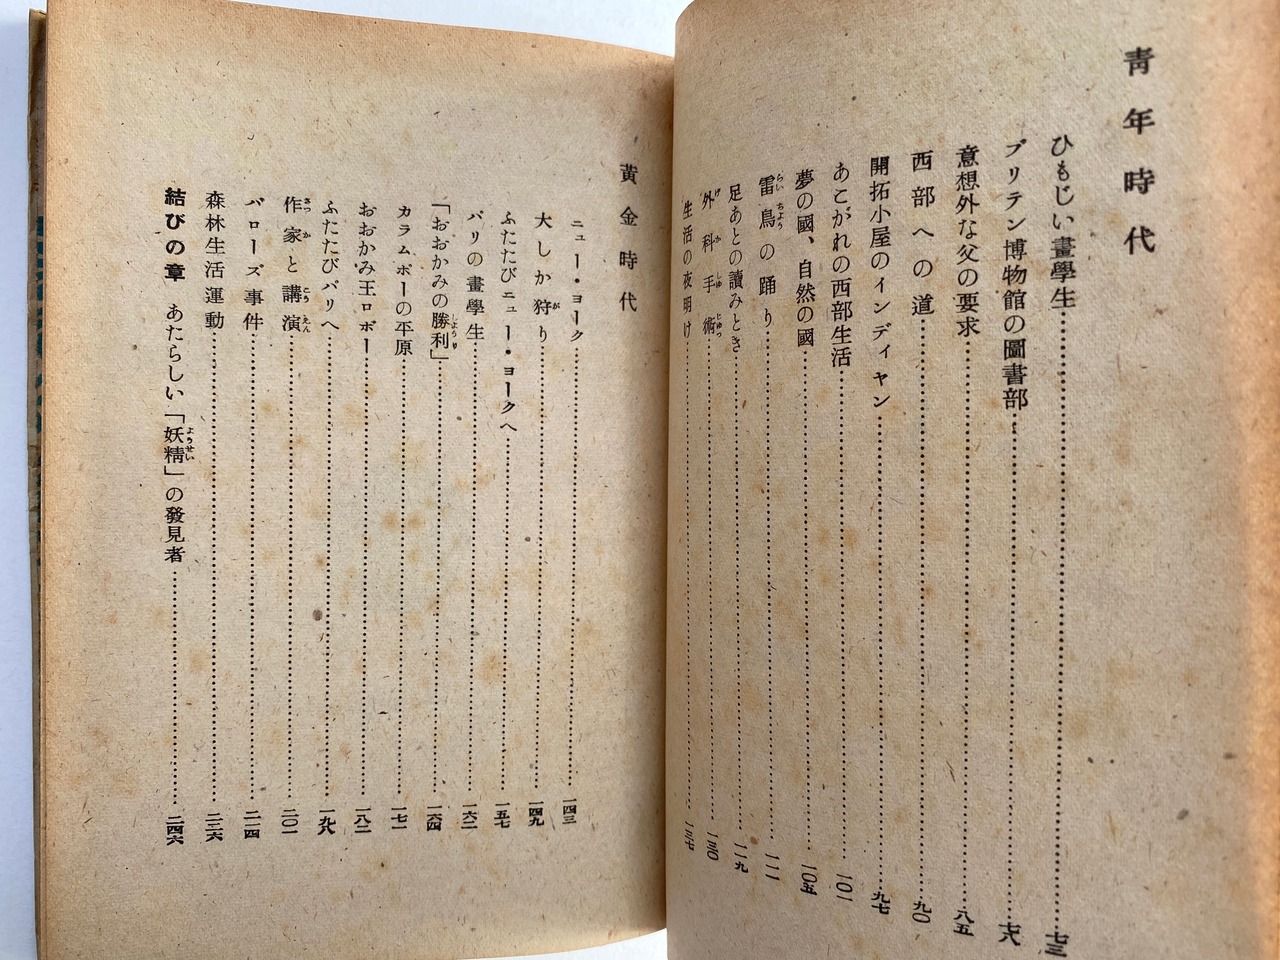 青年時代
ひもじい畫學生……七三
ブリテン博物館の圖書部……七八
意想外な父の要求……八五
西部への道……九〇
開拓小屋のインディヤン……九七
あこがれの西部生活……一〇一
夢の國、自然の國……一〇五
雷鳥の踊り……一一一
足あとの讀みとき……一一九
外科手術……一三〇
生活の夜明け……一三七
黄金時代
ニュー・ヨーク……一四三
大しか狩り……一四九
ふたたびニュー・ヨークへ……一五七
パリの畫學生……一六二
「おおかみの勝利」……一六四
カラムポーの平原……一七一
おおかみ王ロボー……一八二
ふたたびパリへ……一九八
作家と講演……二〇一
バローズ事件……二一四
森林生活運動……二三六
結びの章 あたらしい「妖精」の發見者……二四六